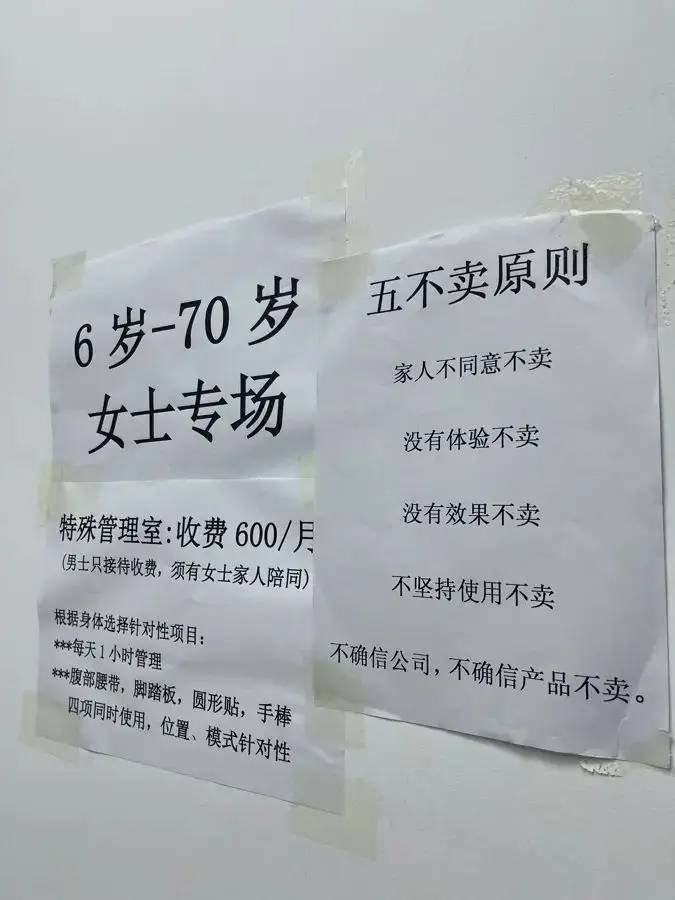 6岁-70岁
女士专场
特殊管理室:收费600/月
(男士只接待收费，须有女士家人陪同)
根据身体选择针对性项目：
***每天1小时管理
***腹部腰带，脚踏板，圆形贴，手棒
四项同时使用，位置、模式针对性
五不卖原则
家人不同意不卖
没有体验不卖
没有效果不卖
不坚持使用不卖
不确信公司，不确信产品不卖。